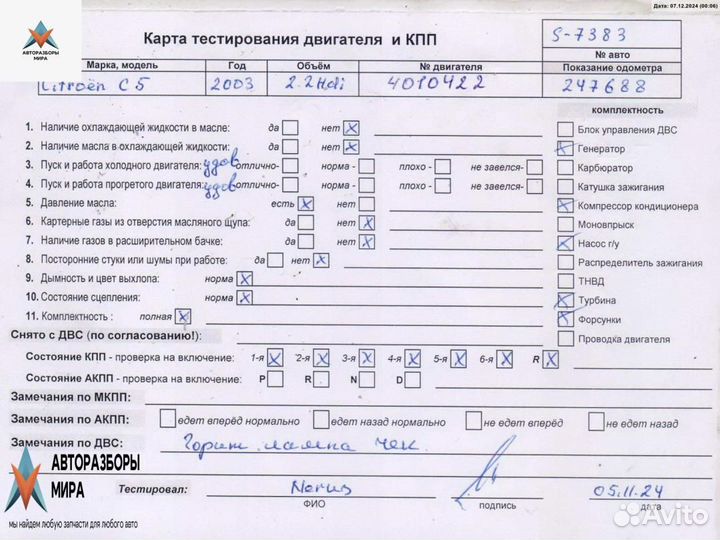 Дата: 07.12.2024 (00:06)
АВТОРАЗБОРЫ
МИРА
Карта тестирования двигателя и КПП
S-7383
№ авто
Марка, модель Год Объём № двигателя Показание одометра
Citroën C5 2003 2.2 Hdi 4010422 247688
комплектность
1. Наличие охлаждающей жидкости в масле: да нет X
2. Наличие масла в охлаждающей жидкости: да нет X
3. Пуск и работа холодного двигателя: удов отлично- норма - плохо - не завелся-
4. Пуск и работа прогретого двигателя: удов отлично- норма - плохо - не завелся-
5. Давление масла: есть X нет
6. Картерные газы из отверстия масляного щупа: да нет X
7. Наличие газов в расширительном бачке: да нет X
8. Посторонние стуки или шумы при работе: да нет X
9. Дымность и цвет выхлопа: норма X
10. Состояние сцепления: норма X
11. Комплектность : полная X
Блок управления ДВС
X Генератор
Карбюратор
Катушка зажигания
X Компрессор кондиционера
Моновпрыск
X Насос г/у
Распределитель зажигания
ТНВД
X Турбина
X Форсунки
Проводка двигателя
Снято с ДВС (по согласованию!):
Состояние КПП - проверка на включение: 1-я X 2-я X 3-я X 4-я X 5-я X 6-я X R X
Состояние АКПП - проверка на включение: P R N D
Замечания по МКПП:
Замечания по АКПП: едет вперёд нормально едет назад нормально не едет вперёд не едет назад
Замечания по ДВС: Горит лампа чек
АВТОРАЗБОРЫ
МИРА
мы найдем любую запчасти для любого авто
Тестировал: 05.11.24
ФИО подпись дата
Avito